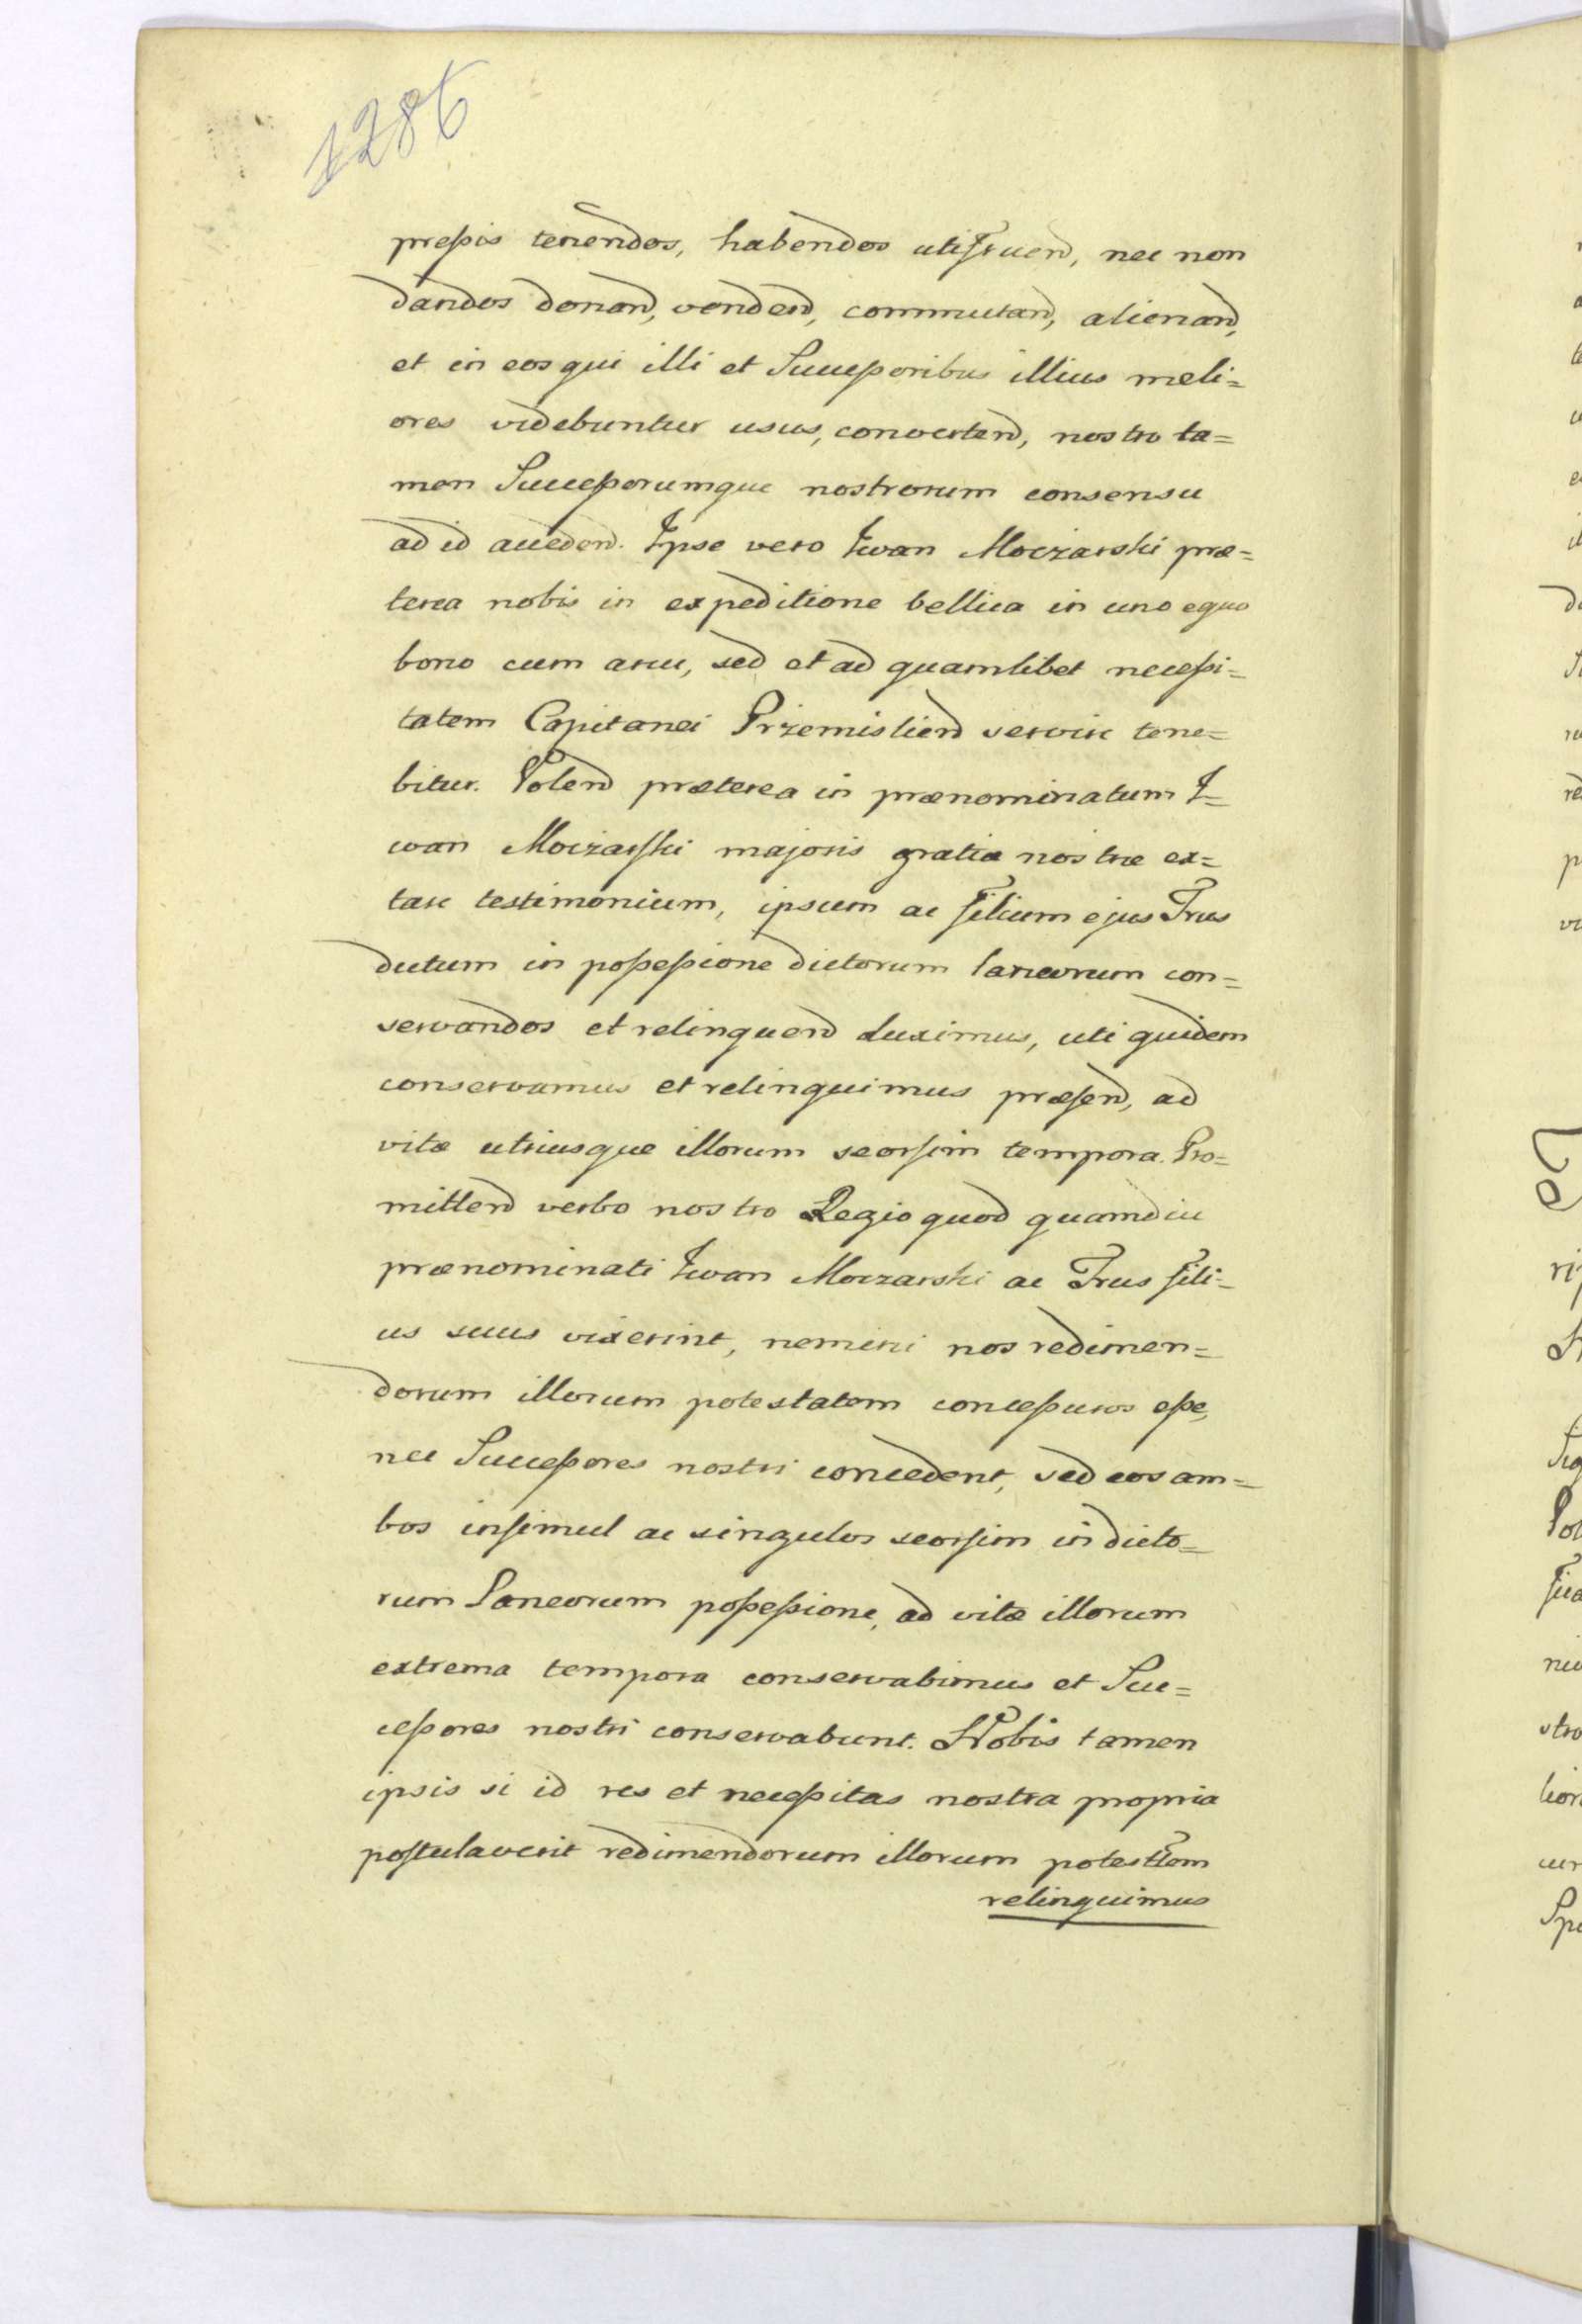 1286
pressis tenendos, habendos utifruend, nec non
dandos donand, vendend, commutand, alienand,
et in eos qui illi et Successoribus illius meli=
ores videbuntur usus, convertend, nostro ta=
men Successorumque nostrorum consensu
ad id acceden̄d. Ipse vero Iwan Moczarski præ=
terea nobis in expeditione bellica in uno equo
bono cum arcu, sed et ad quamlibet necessi=
tatem Capitanei Przemislien̄d servire tene=
bitur. Volend præterea in prænominatum I=
wan Moczarski majoris gratiæ nostræ ex=
tare testimonium, ipsum ac filium ejus Irus
dutum in possessione dictorum laneorum con=
servandos et relinquend duximus, uti quidem
conservamus et relinquimus præsend, ad
vitæ utriusque illorum seorsim tempora. Pro=
mittend verbo nostro Regio quod quamdiu
prænominati Iwan Moczarski ac Irus fili=
us suus vixerint, nemini nos redimen=
dorum illorum potestatem concessuros esse,
nec Successores nostri concedent, sed eos am=
bos insimul ac singulos seorsim in dicto=
rum Laneorum possessione, ad vitæ illorum
extrema tempora conservabimus et Suc=
cessores nostri conservabunt. Nobis tamen
ipsis si id res et necessitas nostra propria
postulaverit redimendorum illorum potesttem
relinquimus